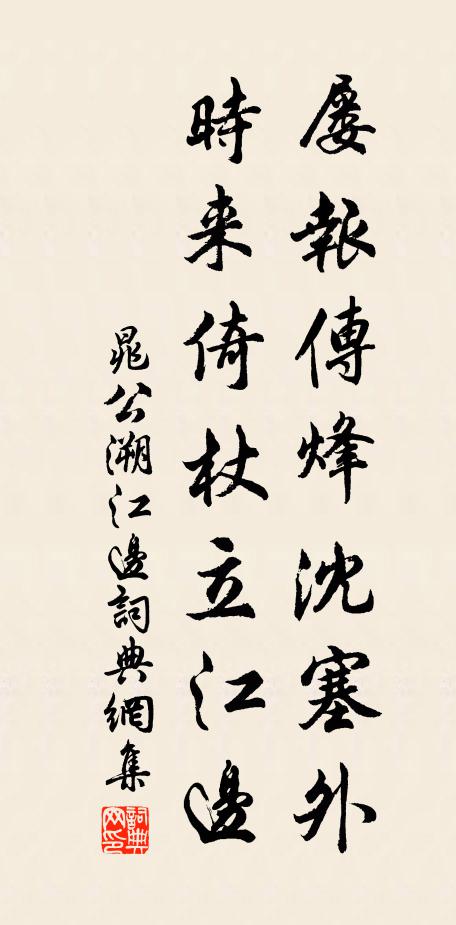 屡報傳烽沈塞外
時来倚杖立江邊
晁公溯江邊詞典網集
詞典网印